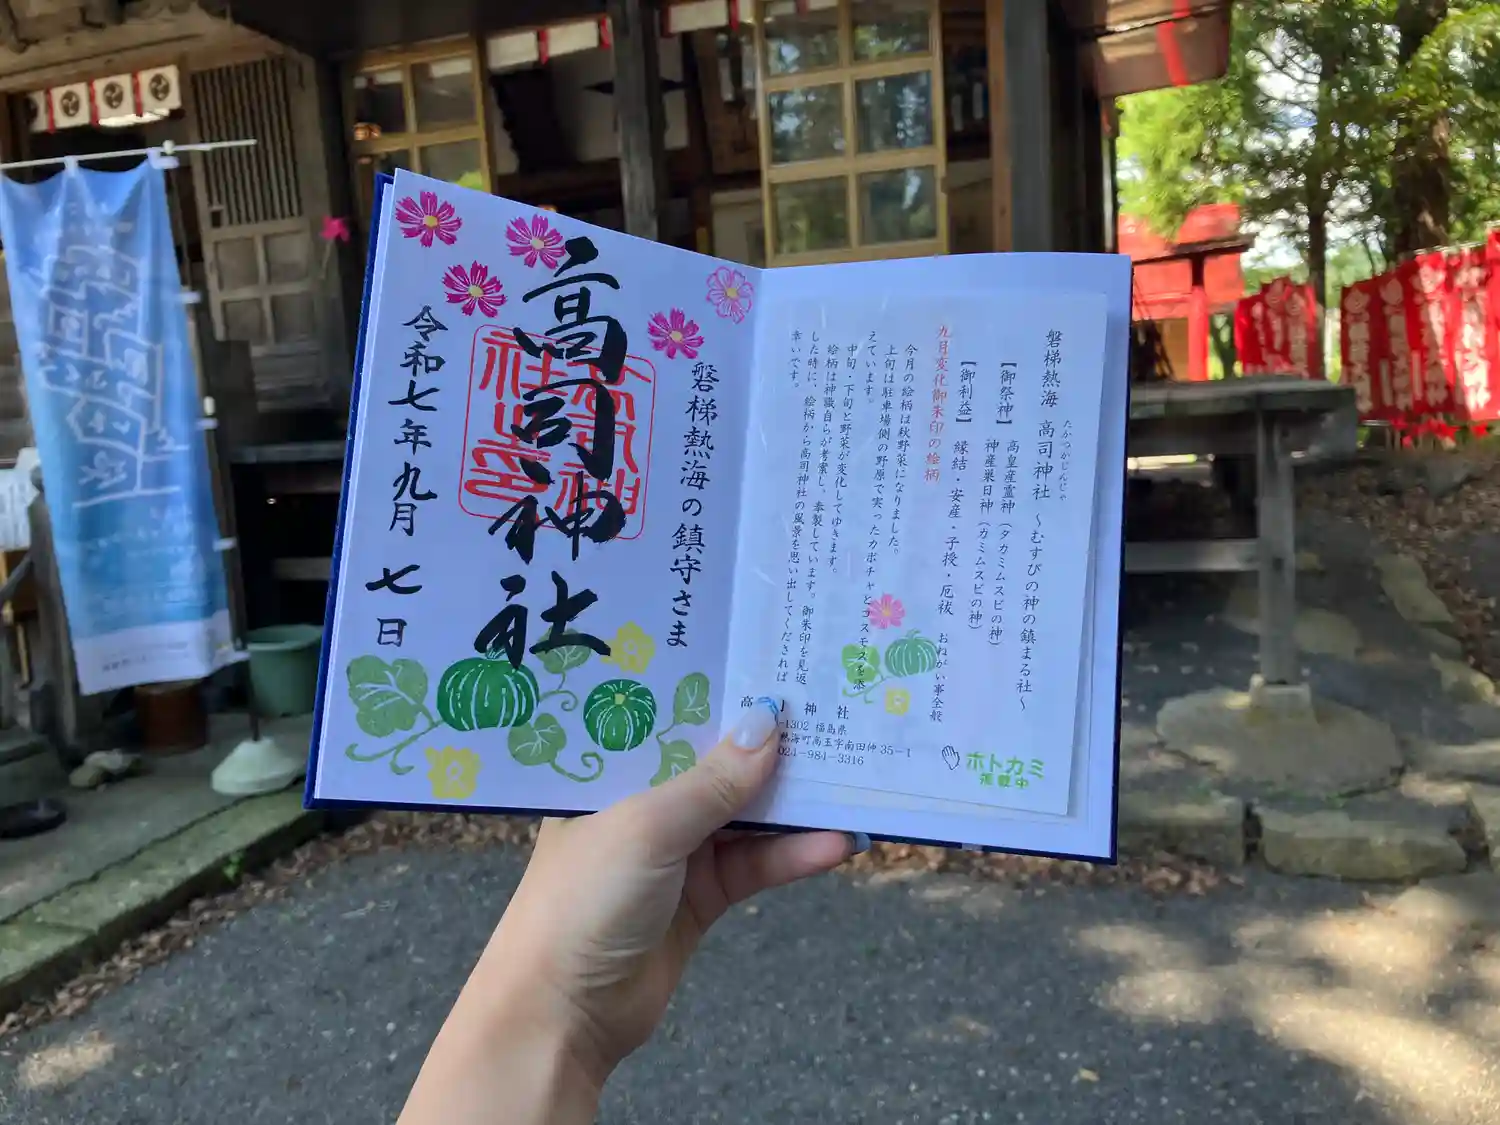 磐梯熱海の鎮守さま
高司神社
令和七年九月 七日
磐梯熱海 高司神社 ～むすびの神の鎮まる社～
たかつかじんじゃ
【御祭神】 高皇産霊神（タカミムスビの神）
神産巣日神（カミムスビの神）
【御利益】 縁結・安産・子授・厄祓 おねがい事全般
九月変化御朱印の絵柄
今月の絵柄は秋野菜になりました。
上旬は駐車場側の野原で実ったカボチャとコスモスを添
えています。
中旬・下旬と野菜が変化してゆきます。
絵柄は神職自らが考案し、奉製しています。御朱印を見返
した時に、絵柄から高司神社の風景を思い出してくだされば
幸いです。
高司神社
-1302 福島県
熱海町高玉字南田仲 35－1
024－984－3316
ホトカミ
掲載中